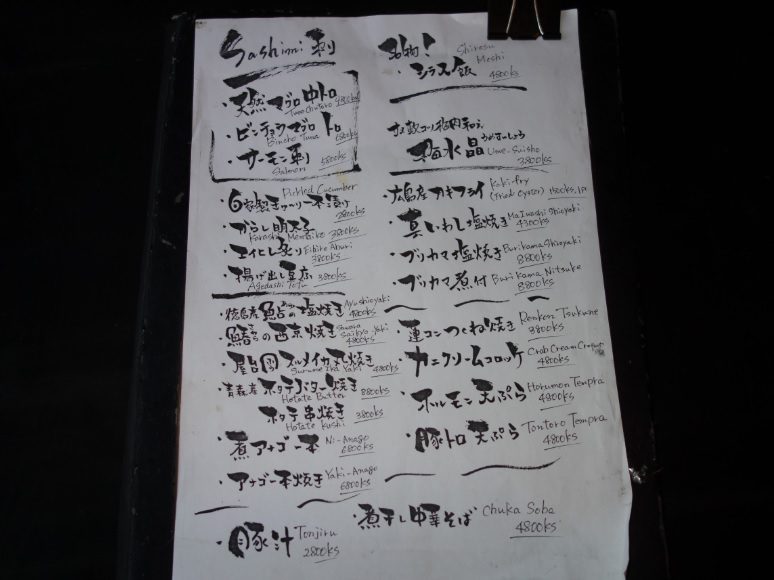 Sashimi 刺
・天然マグロ中トロ
Tuna Chutoro
・ビンチョウマグロ トロ
Bincho Tuna
・サーモン刺 4800ks
Salmon
Pickled Cucumber
・自家製きゅーりー本漬け 2800ks
・からし明太子
Karashi Mentaiko 3800ks
・エイヒレ炙り Eihire Aburi
3800ks
・揚げ出し豆腐 3800ks
Agedashi Tofu
・徳島産 鮎の塩焼き Ayu Shioyaki
4800ks
・鰆の西京焼き Sawara Saikyo-yaki
4800ks
・屋台風スルメイカ丸焼き
Surume Ika Yaki 4800ks
・青森産 ホタテバター焼き 8800ks
Hotate Butter
ホタテ串焼き 3800ks
Hotate Kushi
・煮アナゴ一本 Ni-Anago
6800ks
・アナゴ一本焼き Yaki-Anago
6800ks
・豚汁 Tonjiru
2800ks
名物!
・シラス飯 Shirasu Meshi
4800ks
梅水晶 Ume-Suisho
3800ks
・広島産カキフライ Kaki-fry
(fried Oyster)
・真いわし塩焼き Maiwashi Shioyaki
4300ks
・ブリカマ塩焼き Burikama Shioyaki
8800ks
・ブリカマ煮付 Burikama Nitsuke
8800ks
・蓮コンつくね焼き Renkon Tsukune
3800ks
・カニクリームコロッケ Crab Cream Croquet
4800ks
・ホルモン天ぷら Horumon Tenpra
4800ks
・豚トロ天ぷら Tontoro Tempra
4800ks
・煮干し中華そば Chuka Soba
4800ks